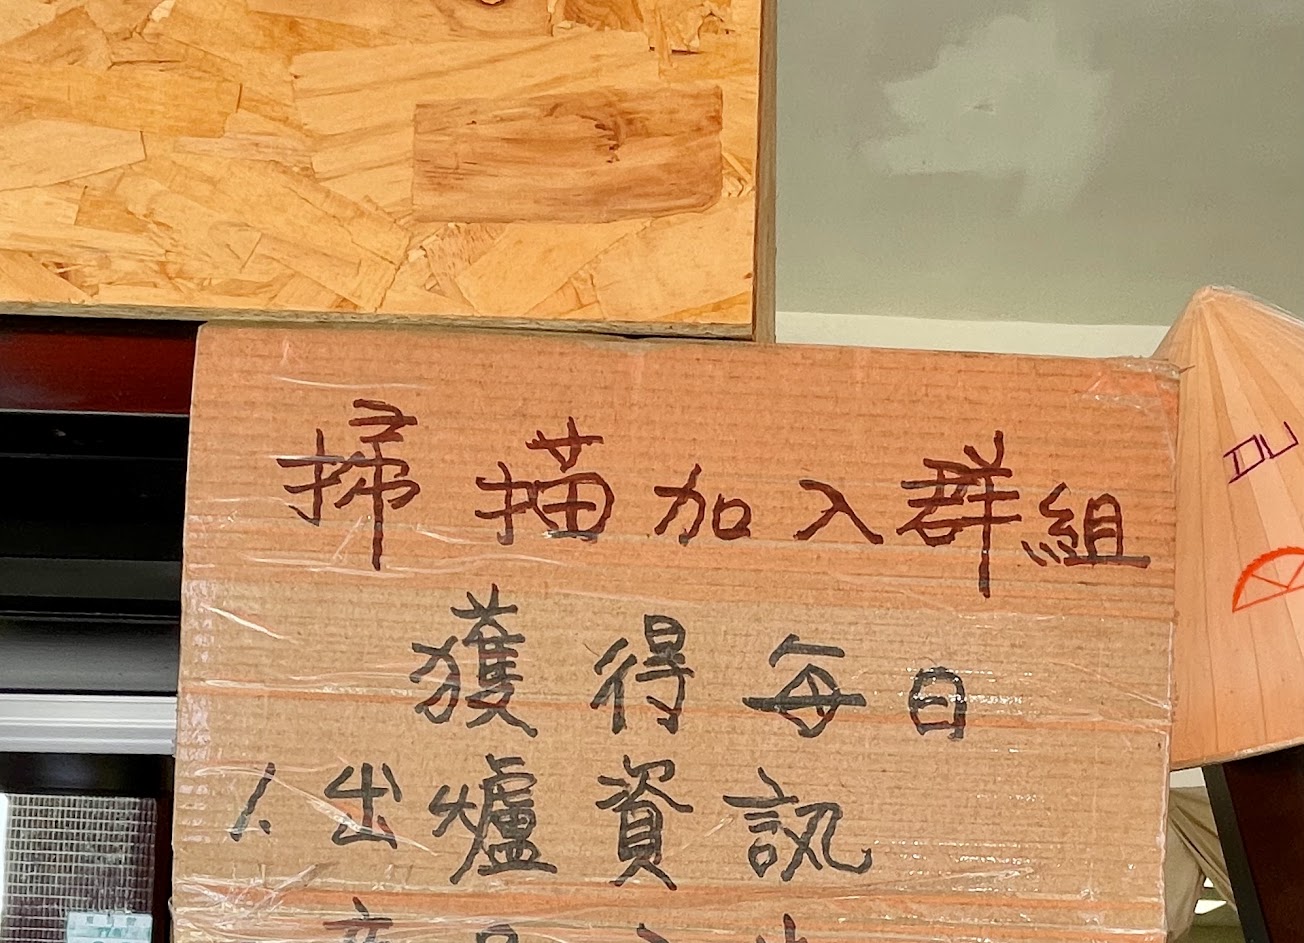 掃描加入群組
獲得每日
1.出爐資訊
DU